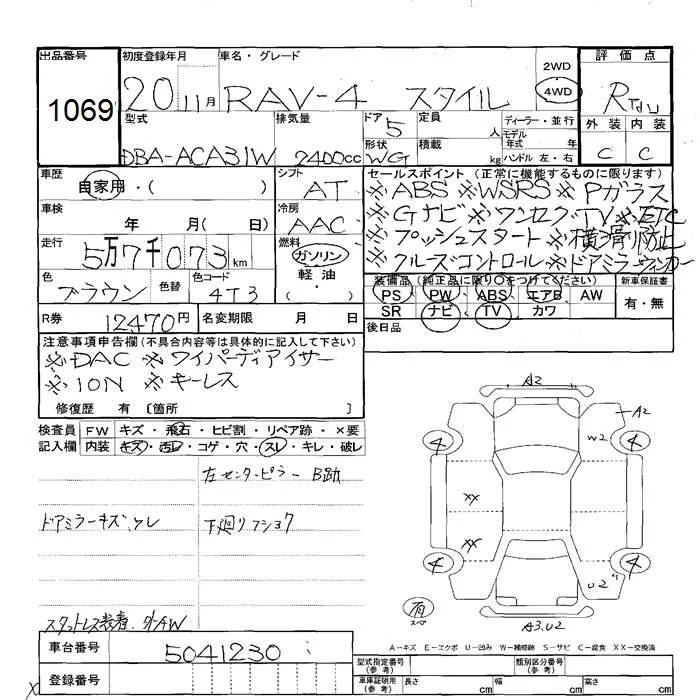 出品番号 初度登録年月 車名・グレード 2WD 評価点
1069 20 11月 RAV-4 スタイル 4WD R
型式 排気量 ドア 5 定員 人 ディーラー・並行 外装 内装
DBA-ACA31W 2400cc 形状 WG 積載 kg モデル年式 年 ハンドル 左・右 C C
車歴 自家用・( ) シフト AT セールスポイント (正常に機能するものに限ります)
※ABS ※WSRS ※Pガラス
車検 年 月( 日) 冷房 AAC ※Gナビ ※ワンセグTV ※ETC
走行 5万7千073km 燃料 ガソリン ※プッシュスタート ※横滑り防止
軽油・( ) ※クルーズコントロール ※ドアミラーウィンカー
色 ブラウン 色替 色コード 4T3 装備品 (純正品に限り○をつけてください) 新車保証書
PS PW ABS エアB AW 有・無
R券 12470円 名変期限 月 日 SR ナビ TV カワ
後日品
注意事項申告欄 (不具合内容等は具体的に記入して下さい)
※DAC ※ワイパーディアイサー
※ION ※キーレス
修復歴 有 〔箇所 〕
検査員 FW キズ・飛石・ヒビ割・リペア跡・×要
記入欄 内装 キズ・汚レ・コゲ・穴・スレ・キレ・破レ
左センターピラー B跡
ドアミラーキズ、スレ 下廻りフショク
スタットレス装着、外AW
A2
A2
4 W2 4
XX
XX
4 4
U2
有 スペア
A3.U2
A-キズ E-エクボ U-凹み W-補修跡 S-サビ C-腐食 XX-交換済
車台番号 5041230
型式指定番号(参考) 類別区分番号(参考)
登録番号 車庫証明用(参考) 長さ cm 幅 cm 高さ cm